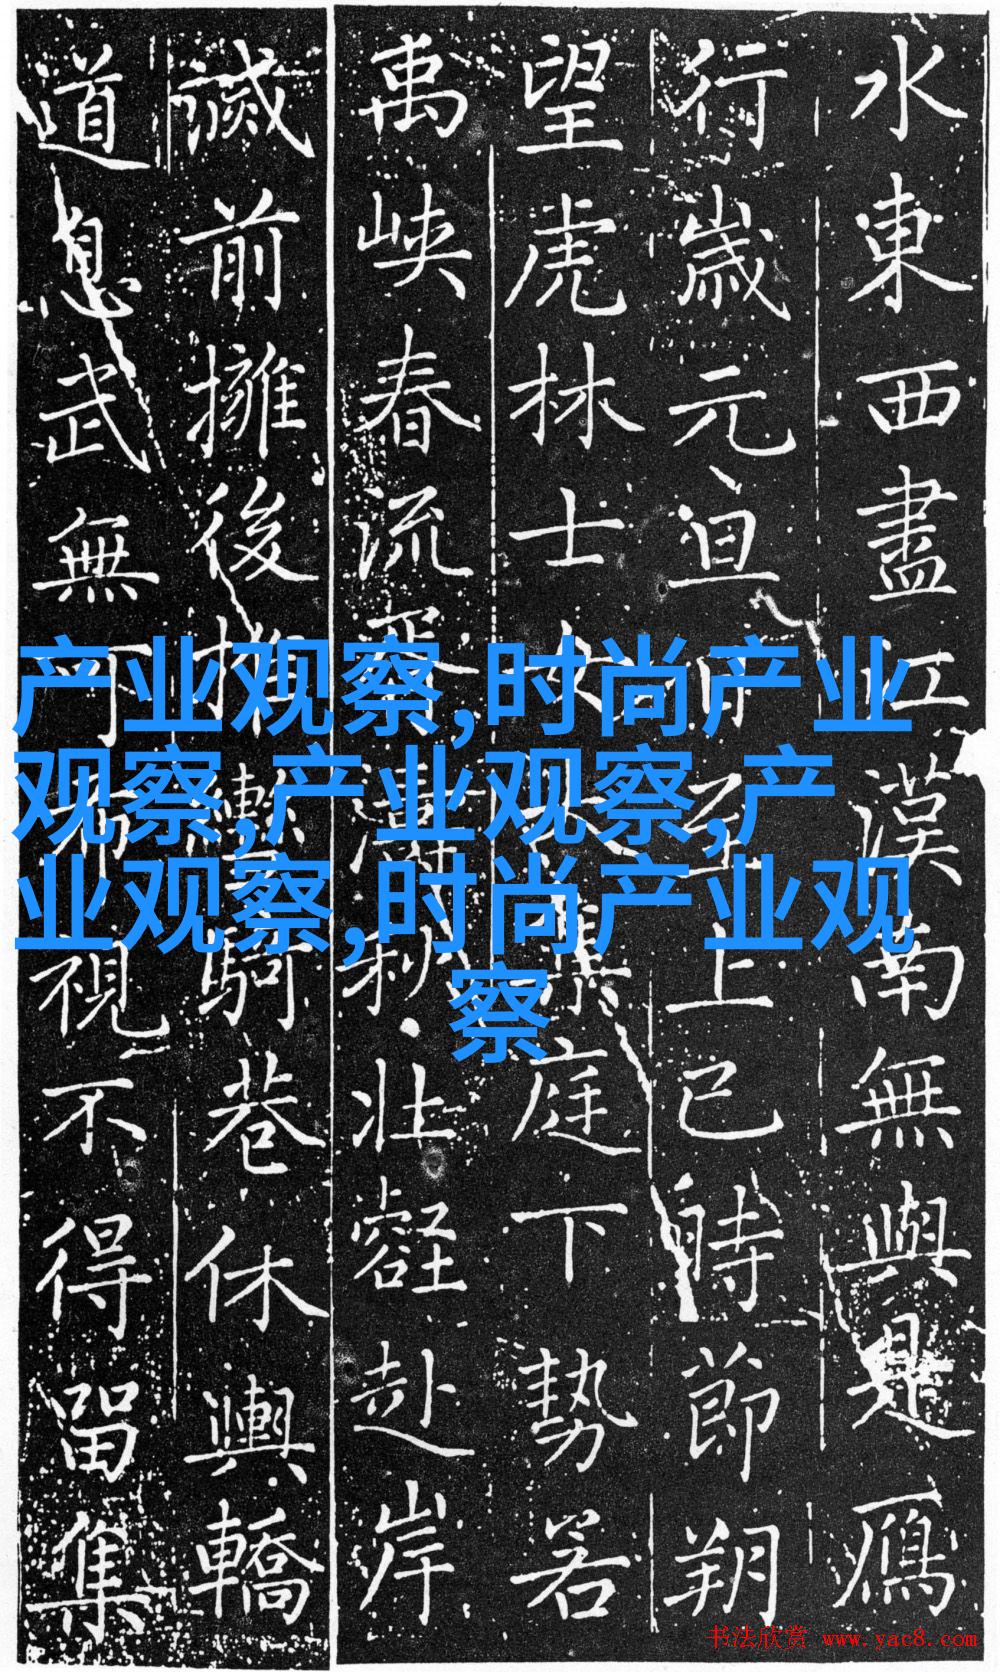 水東西盡江漢南無與是鴈
行歲元旦至上巳時節朔
望虎林士女大集庭下勢若
禹峽春流濤秋壯壑赴岸
前擁後推騎巷休輿轎
道息武無可布視不得留集
产业观察,时尚产业
观察,产业观察,产
业观察,时尚产业观
察
书法欣赏 www.yac8.com